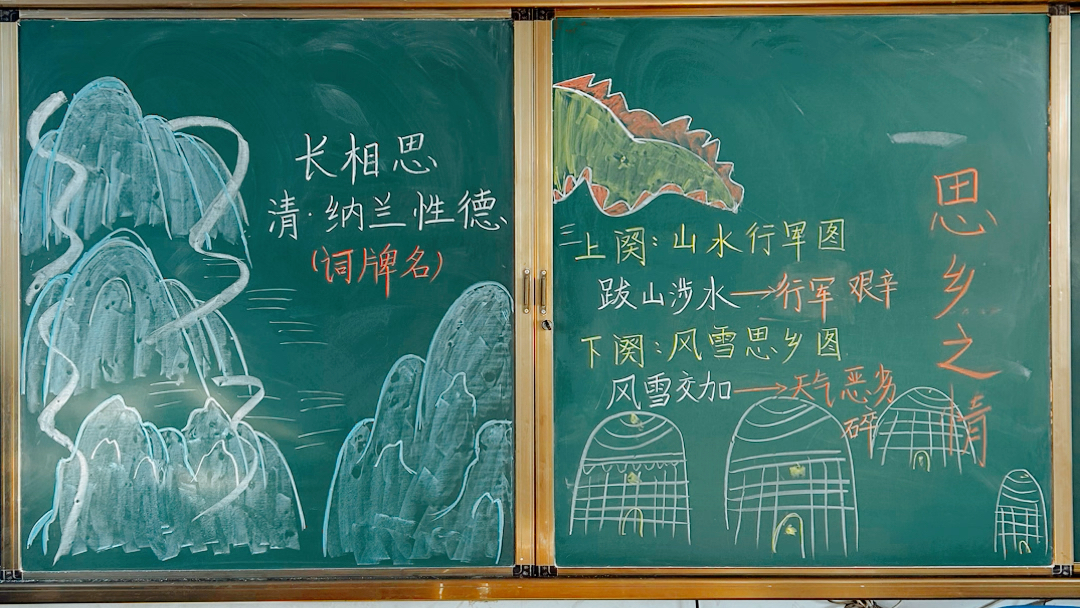 长相思
清·纳兰性德
(词牌名)
上阕:山水行军图
跋山涉水→行军 艰辛
下阕:风雪思乡图
风雪交加→天气恶劣
碎
思乡之情